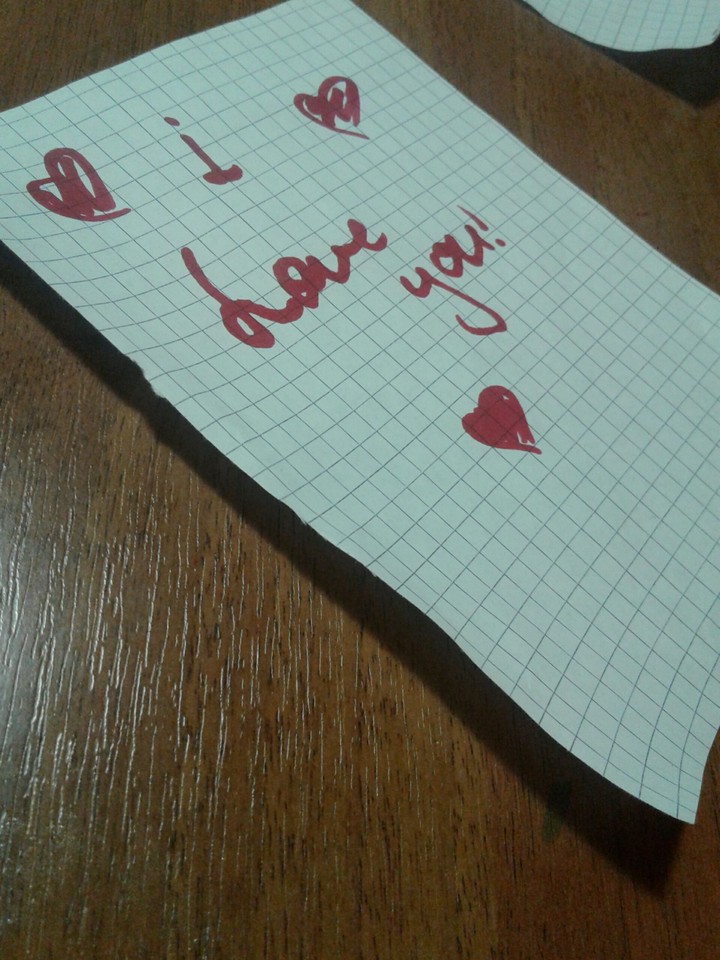 i
Love you!